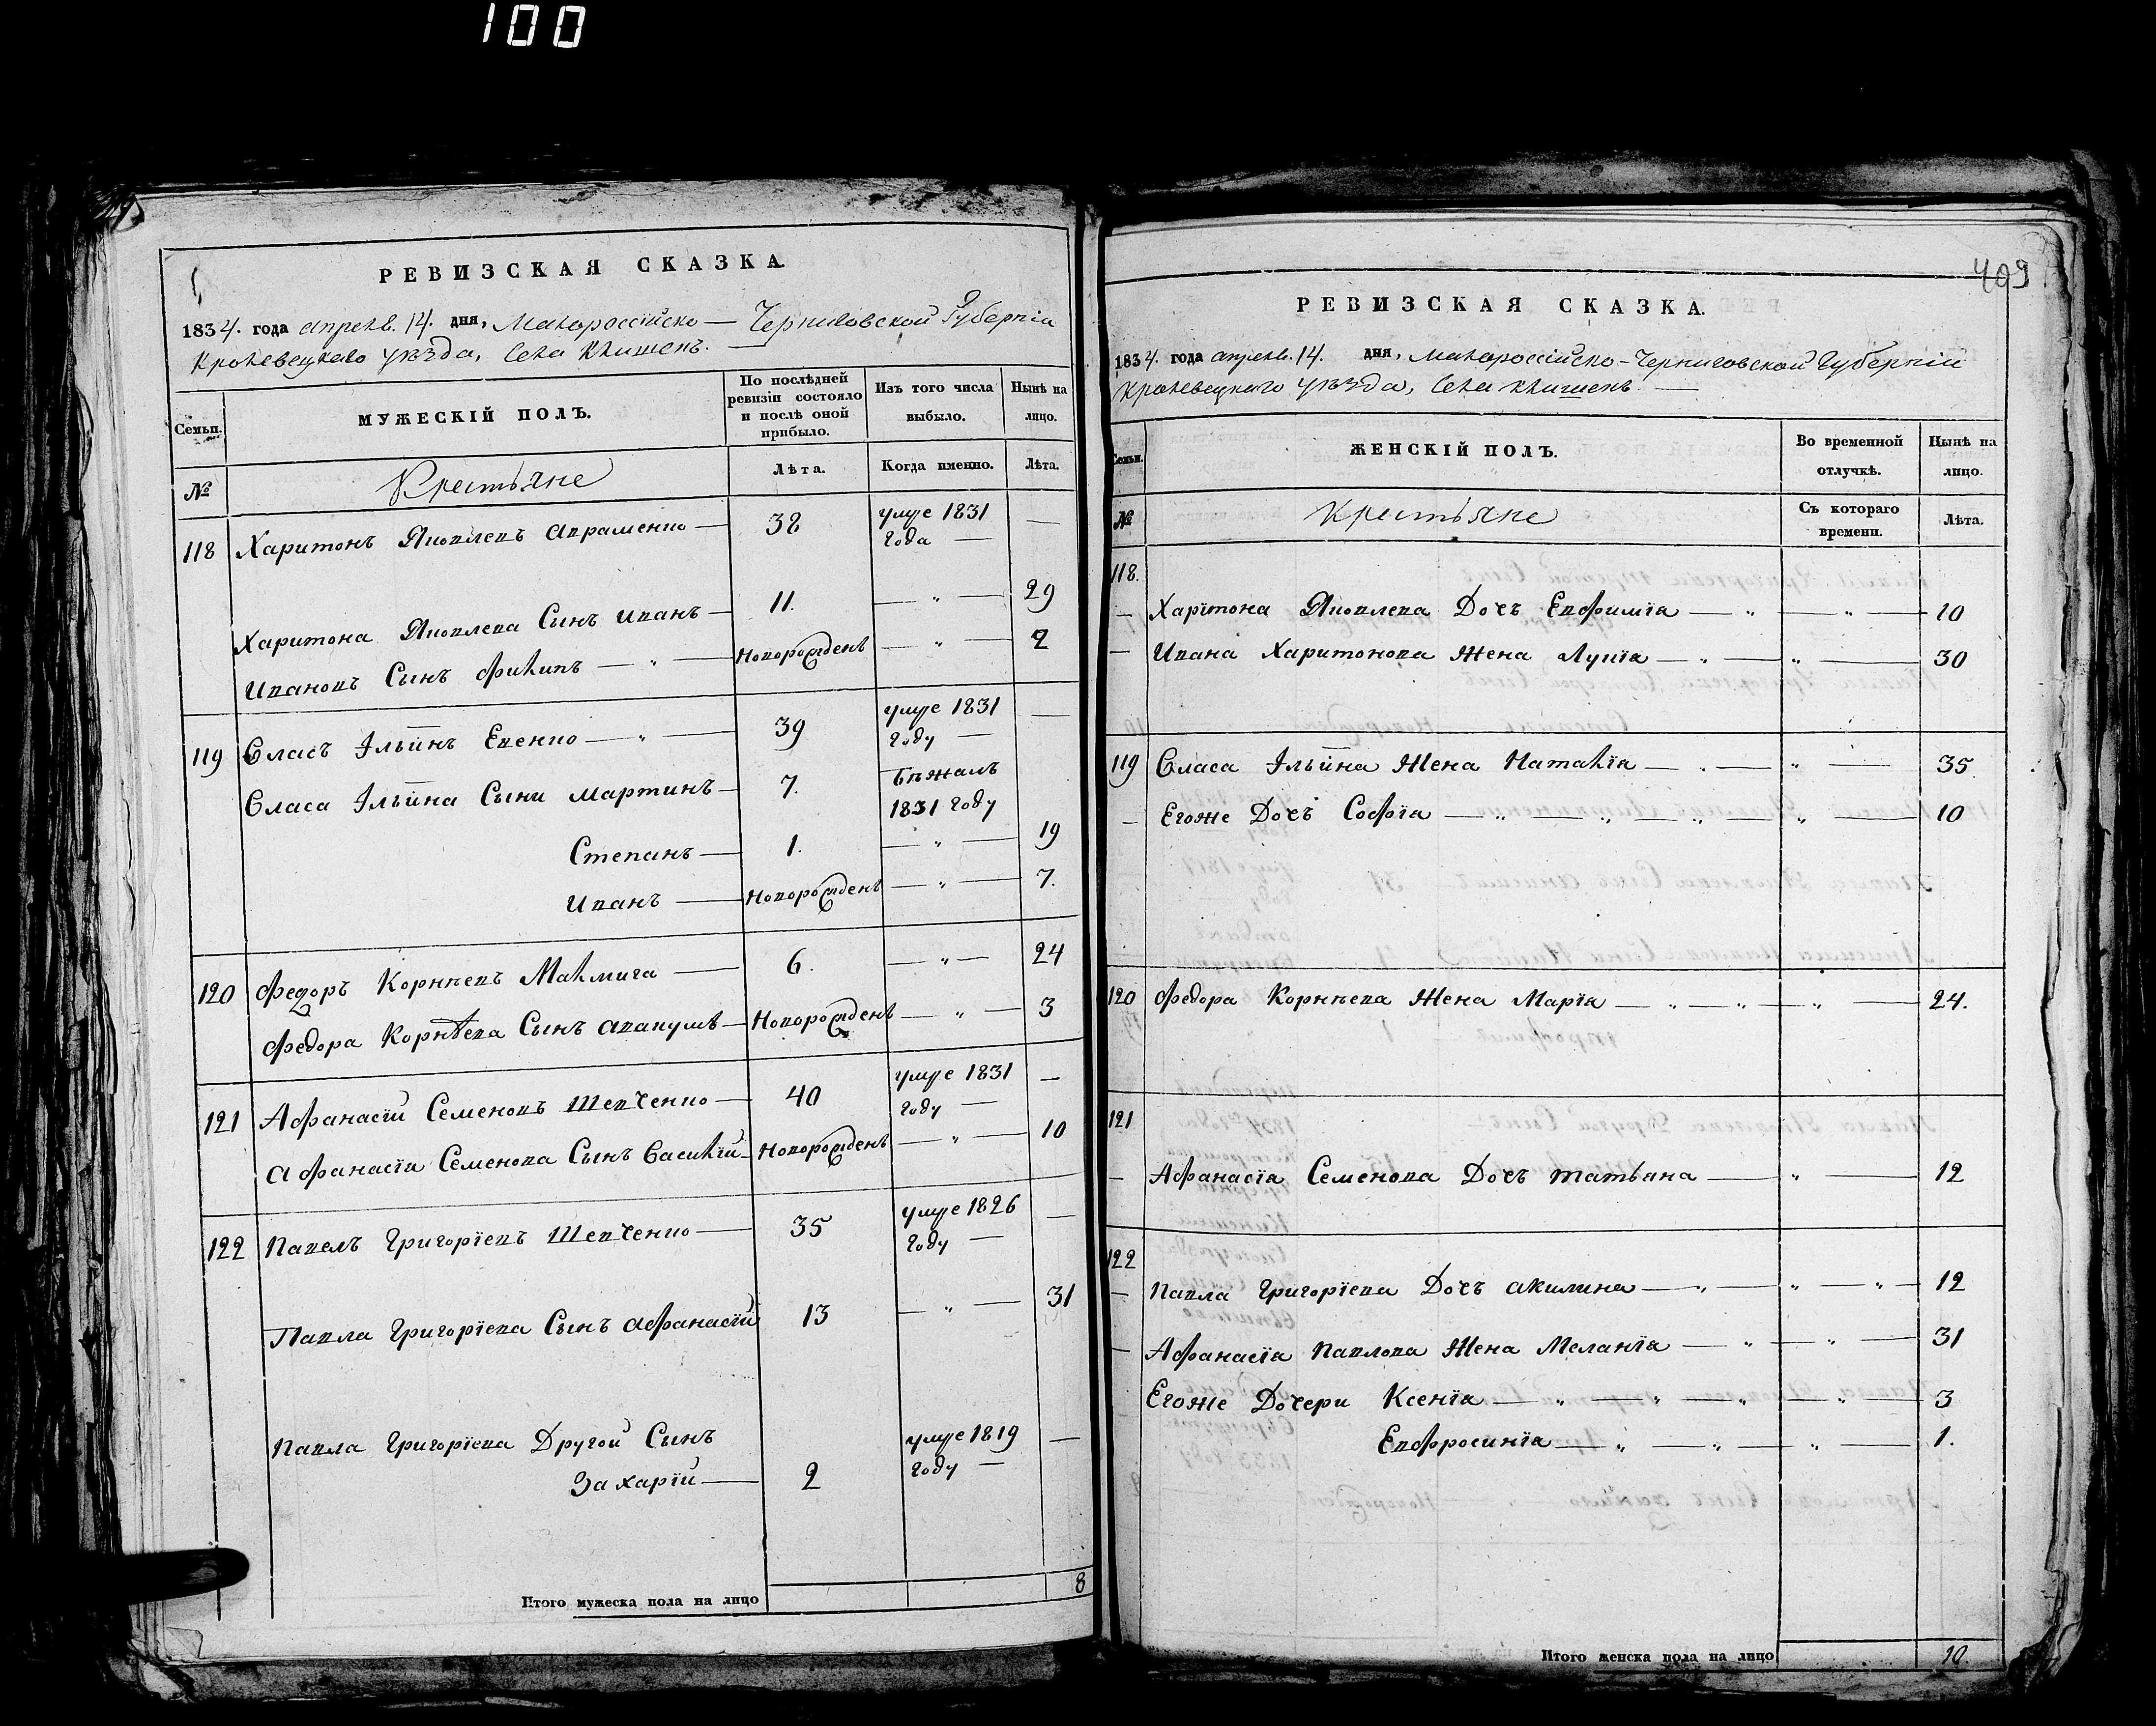 100
РЕВИЗСКАЯ СКАЗКА.
1834. года апрѣля. 14. дня, Малороссійско — Черниговской Губерніи
Кролевецкаго уѣзда, Села Клишекъ.
Семьи.
МУЖЕСКІЙ ПОЛЪ.
По послѣдней ревизіи состояло и послѣ оной прибыло.
Изъ того числа выбыло.
Нынѣ на лицо.
№
Крестьяне
Лѣта.
Когда именно.
Лѣта.
118 Харитонъ Яковлевъ Авраменко — 38 умре 1831 года — —
Харитона Яковлева Сынъ Иванъ — 11. — „ — 29
Ивановъ Сынъ Филипъ — „ — Новорожденъ — „ — 2
119 Власъ Ільинъ Евенко — „ — 39 умре 1831 году — —
Власа Ільина Сыни Мартинъ — 7. бѣжалъ 1831 году
Степанъ — 1. — „ — 19
Иванъ — Новорожденъ — „ — 7.
120 Федоръ Корнѣевъ — 6. — „ — 24
Федора Корнѣева Сынъ — Новорожденъ — „ — 3
121 Афанасій Семеновъ Шевченко — 40 умре 1831 году — —
Афанасія Семенова Сынъ Василій — Новорожденъ — „ — 10
122 Павелъ Григоріевъ Шевченко — 35 умре 1826 году — —
Павла Григоріева Сынъ Афанасій 13 — „ — 31
Павла Григоріева Другой Сынъ
Захарій — 2 умре 1819 году — —
Итого мужеска пола на лицо 8
409
РЕВИЗСКАЯ СКАЗКА.
1834. года апрѣля. 14. дня, Малороссійско — Черниговской Губерніи
Кролевецкаго уѣзда, Села Клишекъ —
Семьи.
ЖЕНСКІЙ ПОЛЪ.
Во временной отлучкѣ.
Нынѣ на лицо.
№
Крестьяне
Съ котораго времени.
Лѣта.
118.
— Харітона Яковлева Дочъ Евфимія — „ — „ — 10
— Ивана Харитонова Жена Лукія — „ — „ — 30
119 Власа Ільина Жена Наталія — „ — „ — 35
— Егоже Дочъ Софія — „ — „ — „ — „ — 10
120 Федора Корнѣева Жена Марія — „ — „ — „ — 24.
121
— Афанасія Семенова Дочъ Татьяна — „ — 12
122
— Павла Григоріева Дочъ Акилина — „ — „ — „ — 12
— Афанасія Павлова Жена Меланія — „ — „ — 31
Егоже Дочери Ксенія — „ — „ — „ — „ — 3
Евфросинія — „ — „ — „ — 1.
Итого женска пола на лицо 10